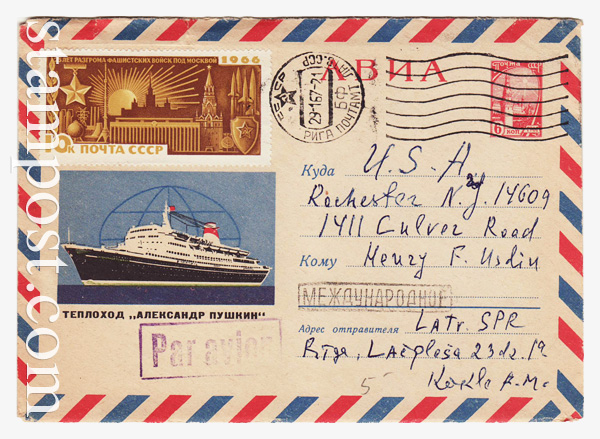 25 ЛЕТ РАЗГРОМА ФАШИСТСКИХ ВОЙСК ПОД МОСКВОЙ 1966
ПОЧТА СССР
АВИА
ПОЧТА СССР
6 коп
29 1 67-21
РИГА ПОЧТАМТ
Куда U.S.A
Rochester N.Y. 14609
1411 Culver Road
Кому Henry F. Usdin
МЕЖДУНАРОДНОЕ
ТЕПЛОХОД „АЛЕКСАНДР ПУШКИН“
Par avion
Адрес отправителя Latv. SPR
Rīga, Lāčplēša 23 dz. 19
A. M.
5
stampost.com